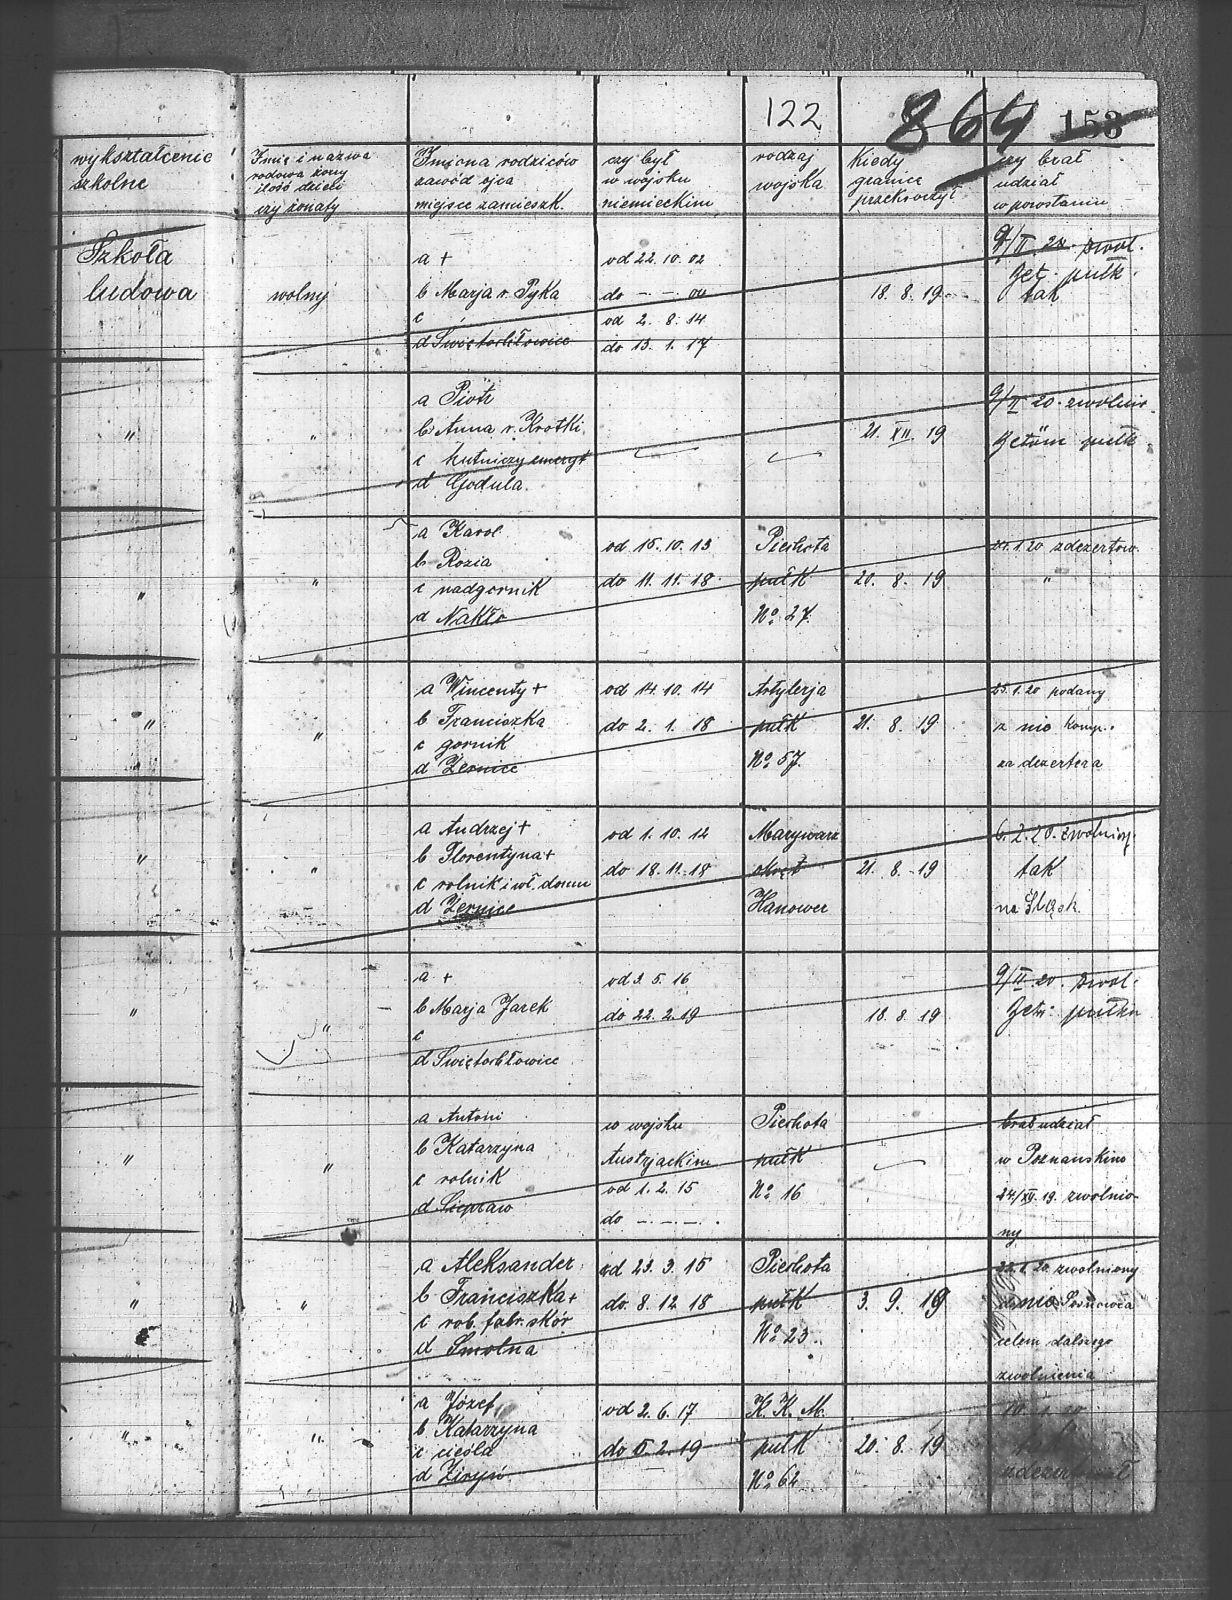 122
864 153
wykształcenie
szkolne
Imię i nazwa
rodowa żony
ilość dzieci
czy żonaty
Imiona rodziców
zawód ojca
miejsce zamieszk.
czy był
w wojsku
niemieckim
rodzaj
wojska
Kiedy
granice
przekroczył
czy brał
udział
w powstaniu
Szkoła
ludowa
wolny
a +
b Marja r. Pyka
c
d Świętochłowice
od 22. 10. 02
do — — 04
od 2. 8. 14
do 13. 1. 17
18. 8. 19
9/II. 20. zwol.
Byt. pułk.
tak
"
"
a Piotr
b Anna r. Krotki
c hutniczy emeryt
d Godula.
21. XII. 19
9/II 20. zwolnio.
Bytom pułk
"
"
a Karol
b Rozia
c nadgornik
d Nakło
od 15. 10. 13
do 11. 11. 18.
Piechota
pułk
No 27.
20. 8. 19
1. 20 zdezertow.
"
"
"
a Wincenty +
b Franciszka
c gornik
d Żernice
od 14. 10. 14
do 2. 1. 18
Artylerja
pułk
No 57.
21. 8. 19
25. 1. 20 podany
z nie komp.
za dezertera
"
"
a Andrzej +
b Florentyna +
c rolnik i wł. domu
d Żernice
od 1. 10. 12
do 18. 11. 18
Marynarz
okręt
Hanower
21. 8. 19
6. 2. 20. zwolniony
tak
na Śląsk.
"
"
a +
b Marja Jarek
c
d Świętochłowice
od 3. 5. 16
do 22. 2. 19
18. 8. 19
9/II 20. zwol.
pułku
"
"
a Antoni
b Katarzyna
c rolnik
d Siepraw
w wojsku
Austrjackim
od 1. 2. 15
do — . — . — .
Piechota
pułk
No 16
brał udział
w Poznańskim
24/XII. 19. zwolnio-
ny
"
"
a Aleksander
b Franciszka +
c rob. fabr. skór
d Smolna
od 23. 3. 15
do 8. 12 18
Piechota
pułk
No 23.
3. 9. 19
1. 20 zwolniony
do Sosnowca
celem dalszego
zwolnienia
"
"
a Józef
b Katarzyna
c cieśla
d
od 2. 6. 17
do 5. 2. 19
K. K. M.
pułk
No 62
20. 8. 19
10. 1. 20
zdezerterował